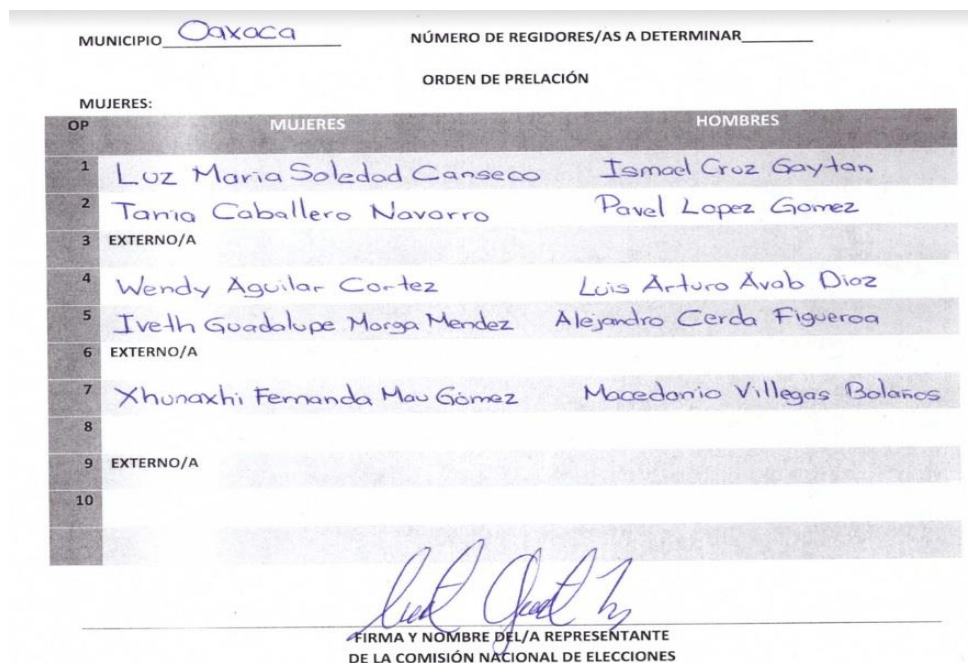 MUNICIPIO Oaxaca NÚMERO DE REGIDORES/AS A DETERMINAR________
ORDEN DE PRELACIÓN
MUJERES:
OP MUJERES HOMBRES
1 Luz Maria Soledad Canseco Ismael Cruz Gaytan
2 Tania Caballero Navarro Pavel Lopez Gomez
3 EXTERNO/A
4 Wendy Aguilar Cortez Luis Arturo Avab Diaz
5 Iveth Guadalupe Morga Mendez Alejandro Cerda Figueroa
6 EXTERNO/A
7 Xhunaxhi Fernanda Mau Gómez Macedonio Villegas Bolaños
8
9 EXTERNO/A
10
FIRMA Y NOMBRE DEL/A REPRESENTANTE
DE LA COMISIÓN NACIONAL DE ELECCIONES